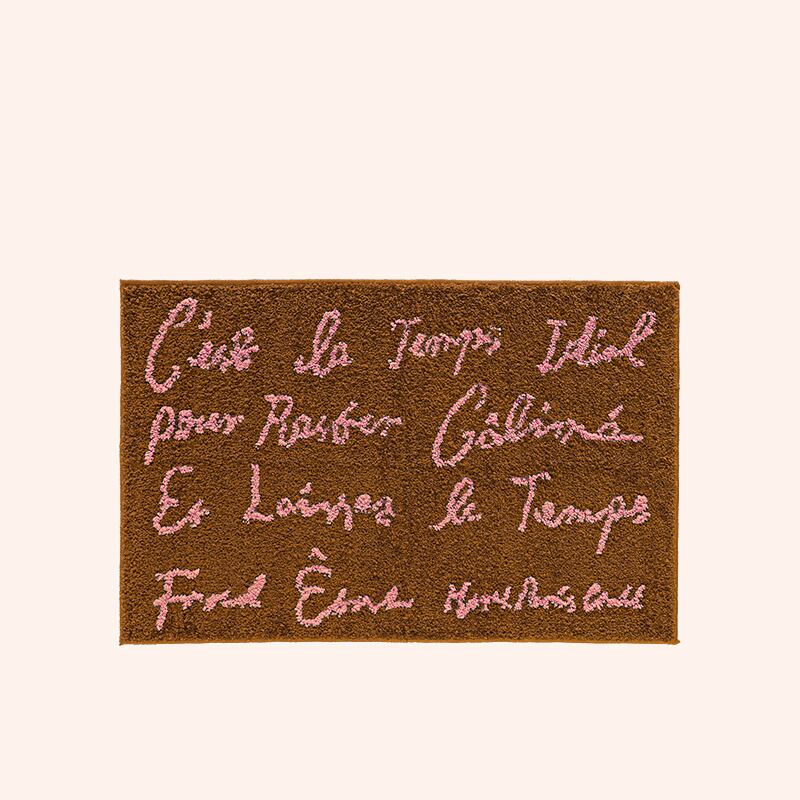 C'est le Temps Idéal
pour Rester Câliné
Et Laisser le Temps
Froid Être